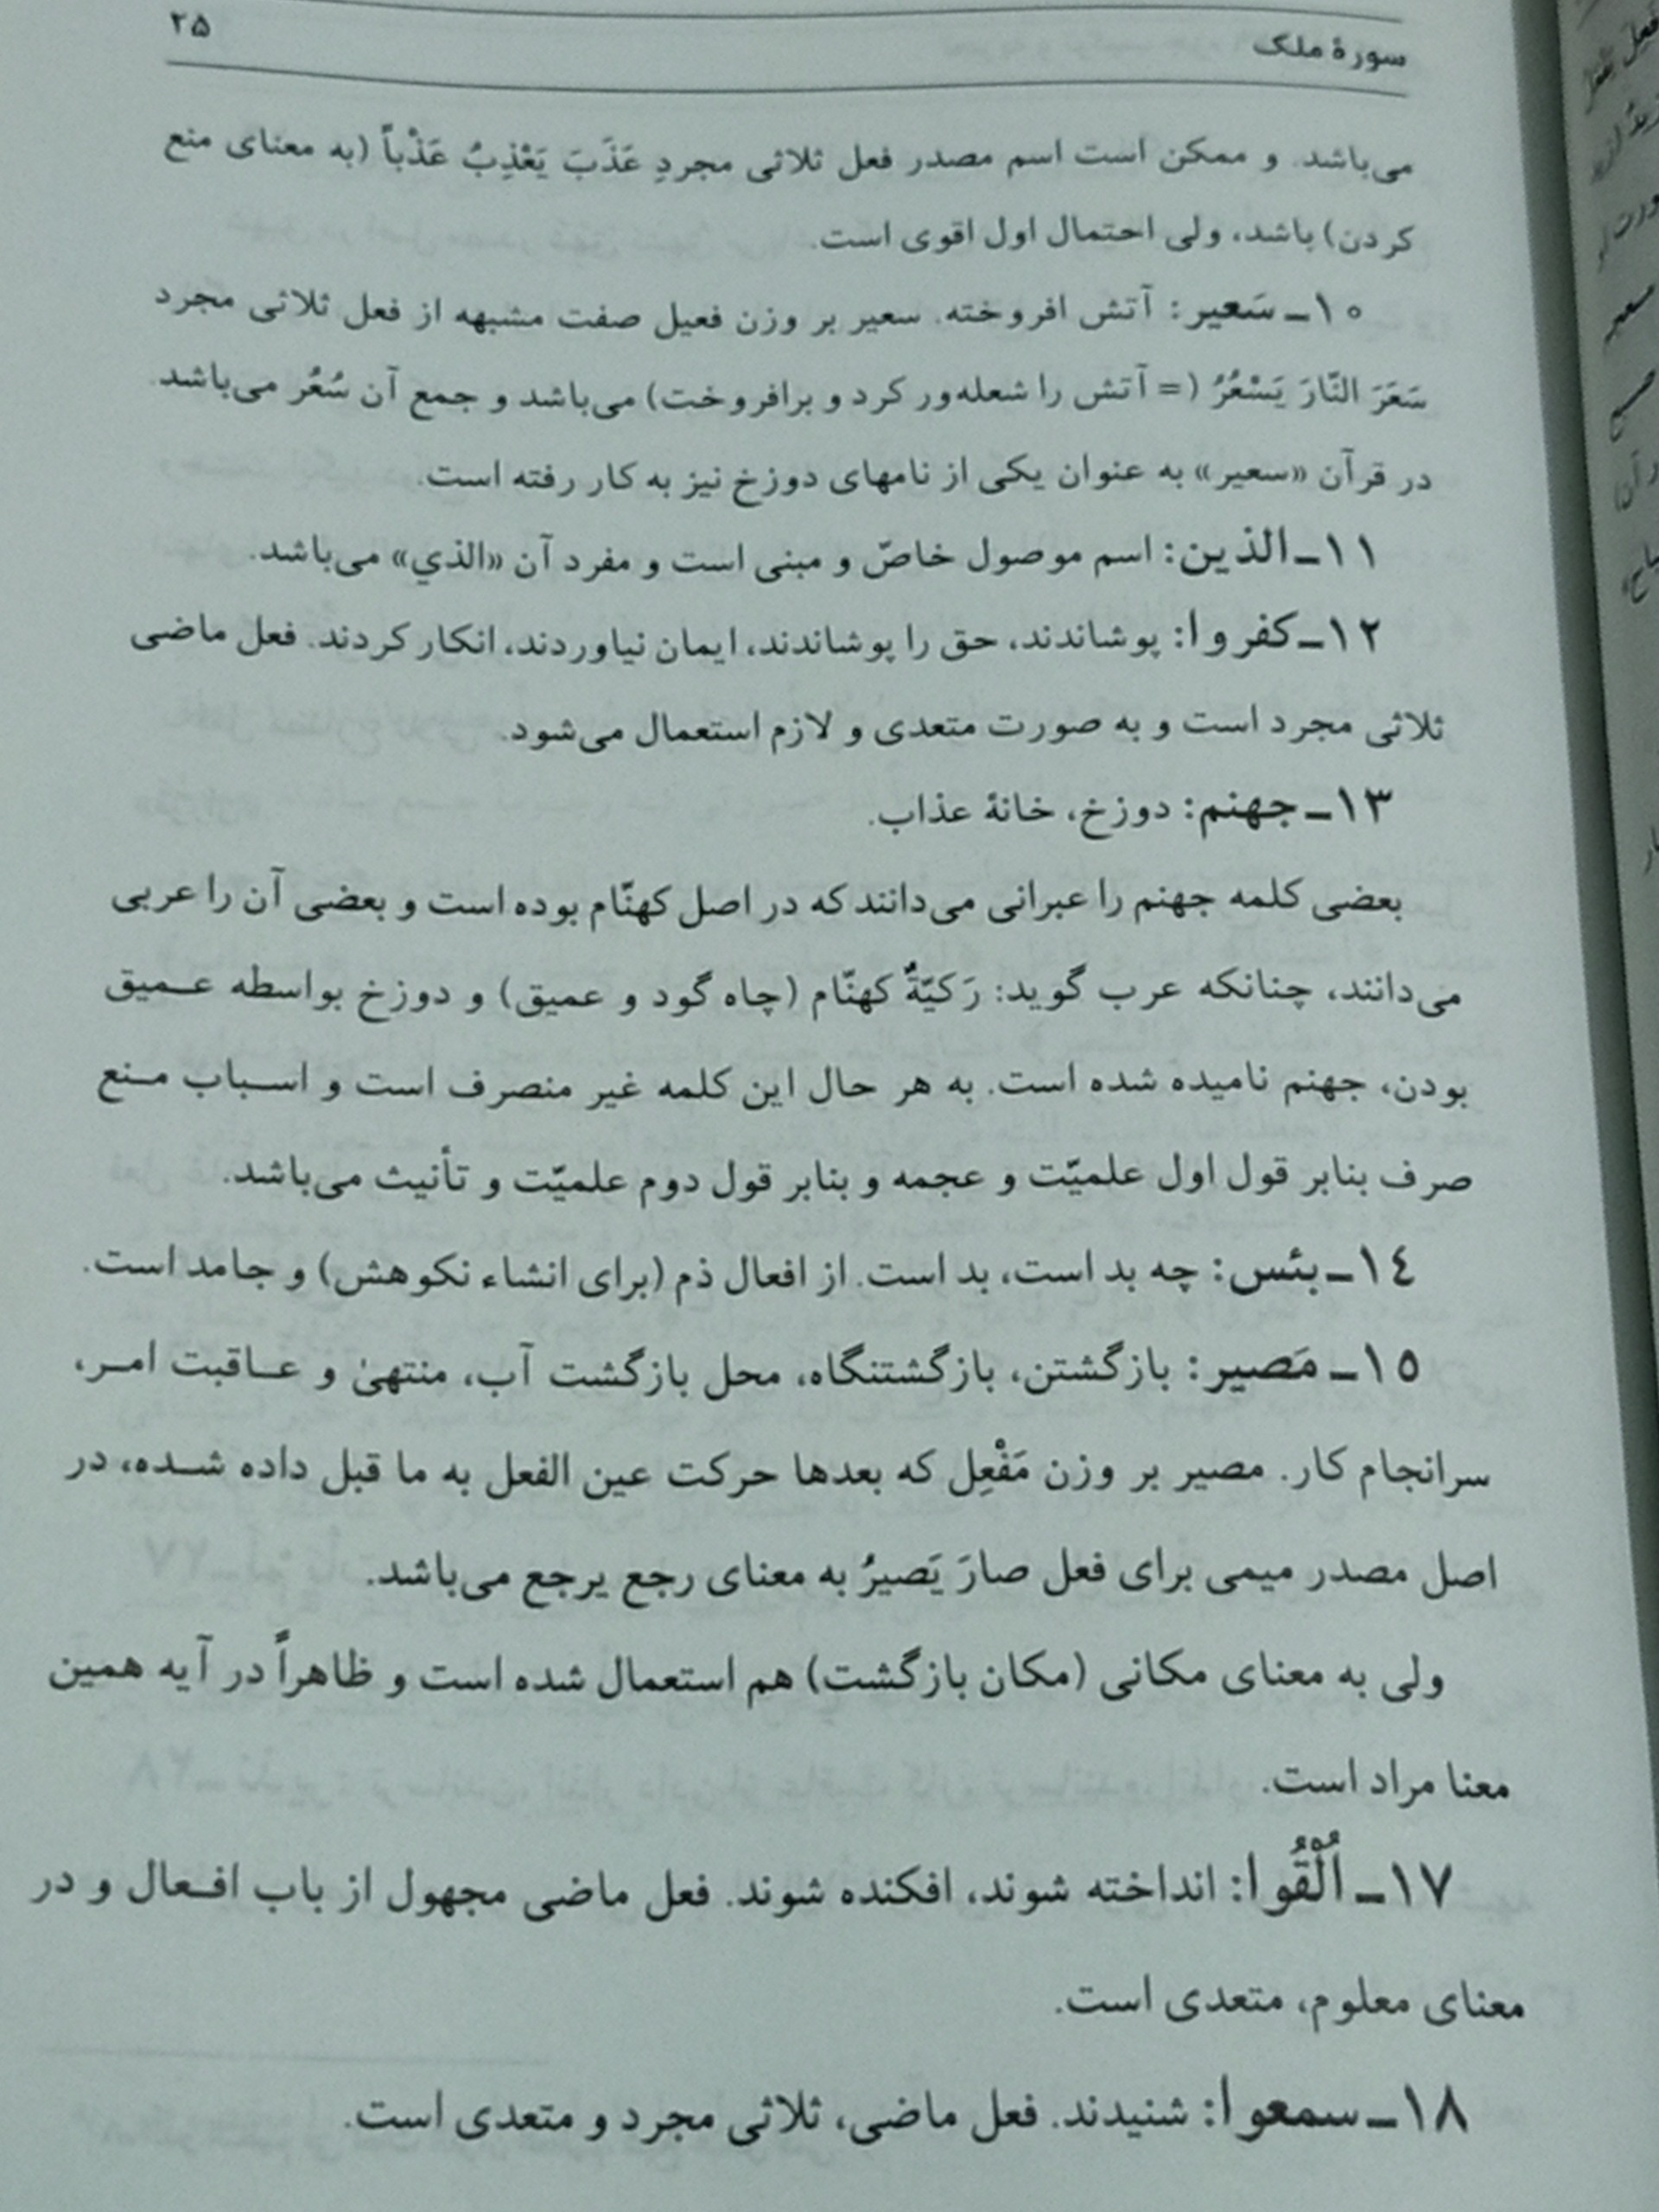 سورهٔ ملک
۲۵
می‌باشد. و ممکن است اسم مصدر فعل ثلاثی مجردِ عَذَبَ يَعْذِبُ عَذْباً (به معنای منع
کردن) باشد، ولی احتمال اول اقوی است.
۱۰ـ سَعیر: آتش افروخته. سعیر بر وزن فعیل صفت مشبهه از فعل ثلاثی مجرد
سَعَرَ النّارَ يَسْعُرُ (= آتش را شعله‌ور کرد و برافروخت) می‌باشد و جمع آن سُعُر می‌باشد.
در قرآن «سعیر» به عنوان یکی از نامهای دوزخ نیز به کار رفته است.
۱۱ـ الذین: اسم موصول خاصّ و مبنی است و مفرد آن «الذي» می‌باشد.
۱۲ـ کفروا: پوشاندند، حق را پوشاندند، ایمان نیاوردند، انکار کردند. فعل ماضی
ثلاثی مجرد است و به صورت متعدی و لازم استعمال می‌شود.
۱۳ـ جهنم: دوزخ، خانهٔ عذاب.
بعضی کلمه جهنم را عبرانی می‌دانند که در اصل کهنّام بوده است و بعضی آن را عربی
می‌دانند، چنانکه عرب گوید: رَکیّةٌ کهنّام (چاه گود و عمیق) و دوزخ بواسطه عـمیق
بودن، جهنم نامیده شده است. به هر حال این کلمه غیر منصرف است و اسـباب مـنع
صرف بنابر قول اول علمیّت و عجمه و بنابر قول دوم علمیّت و تأنیث می‌باشد.
۱٤ـ بئس: چه بد است، بد است. از افعال ذم (برای انشاء نکوهش) و جامد است.
۱٥ـ مَصیر: بازگشتن، بازگشتنگاه، محل بازگشت آب، منتهیٰ و عـاقبت امـر،
سرانجام کار. مصیر بر وزن مَفْعِل که بعدها حرکت عین الفعل به ما قبل داده شـده، در
اصل مصدر میمی برای فعل صارَ یَصیرُ به معنای رجع یرجع می‌باشد.
ولی به معنای مکانی (مکان بازگشت) هم استعمال شده است و ظاهراً در آیه همین
معنا مراد است.
۱۷ـ اُلْقُوا: انداخته شوند، افکنده شوند. فعل ماضی مجهول از باب افـعال و در
معنای معلوم، متعدی است.
۱۸ـ سمعوا: شنیدند. فعل ماضی، ثلاثی مجرد و متعدی است.